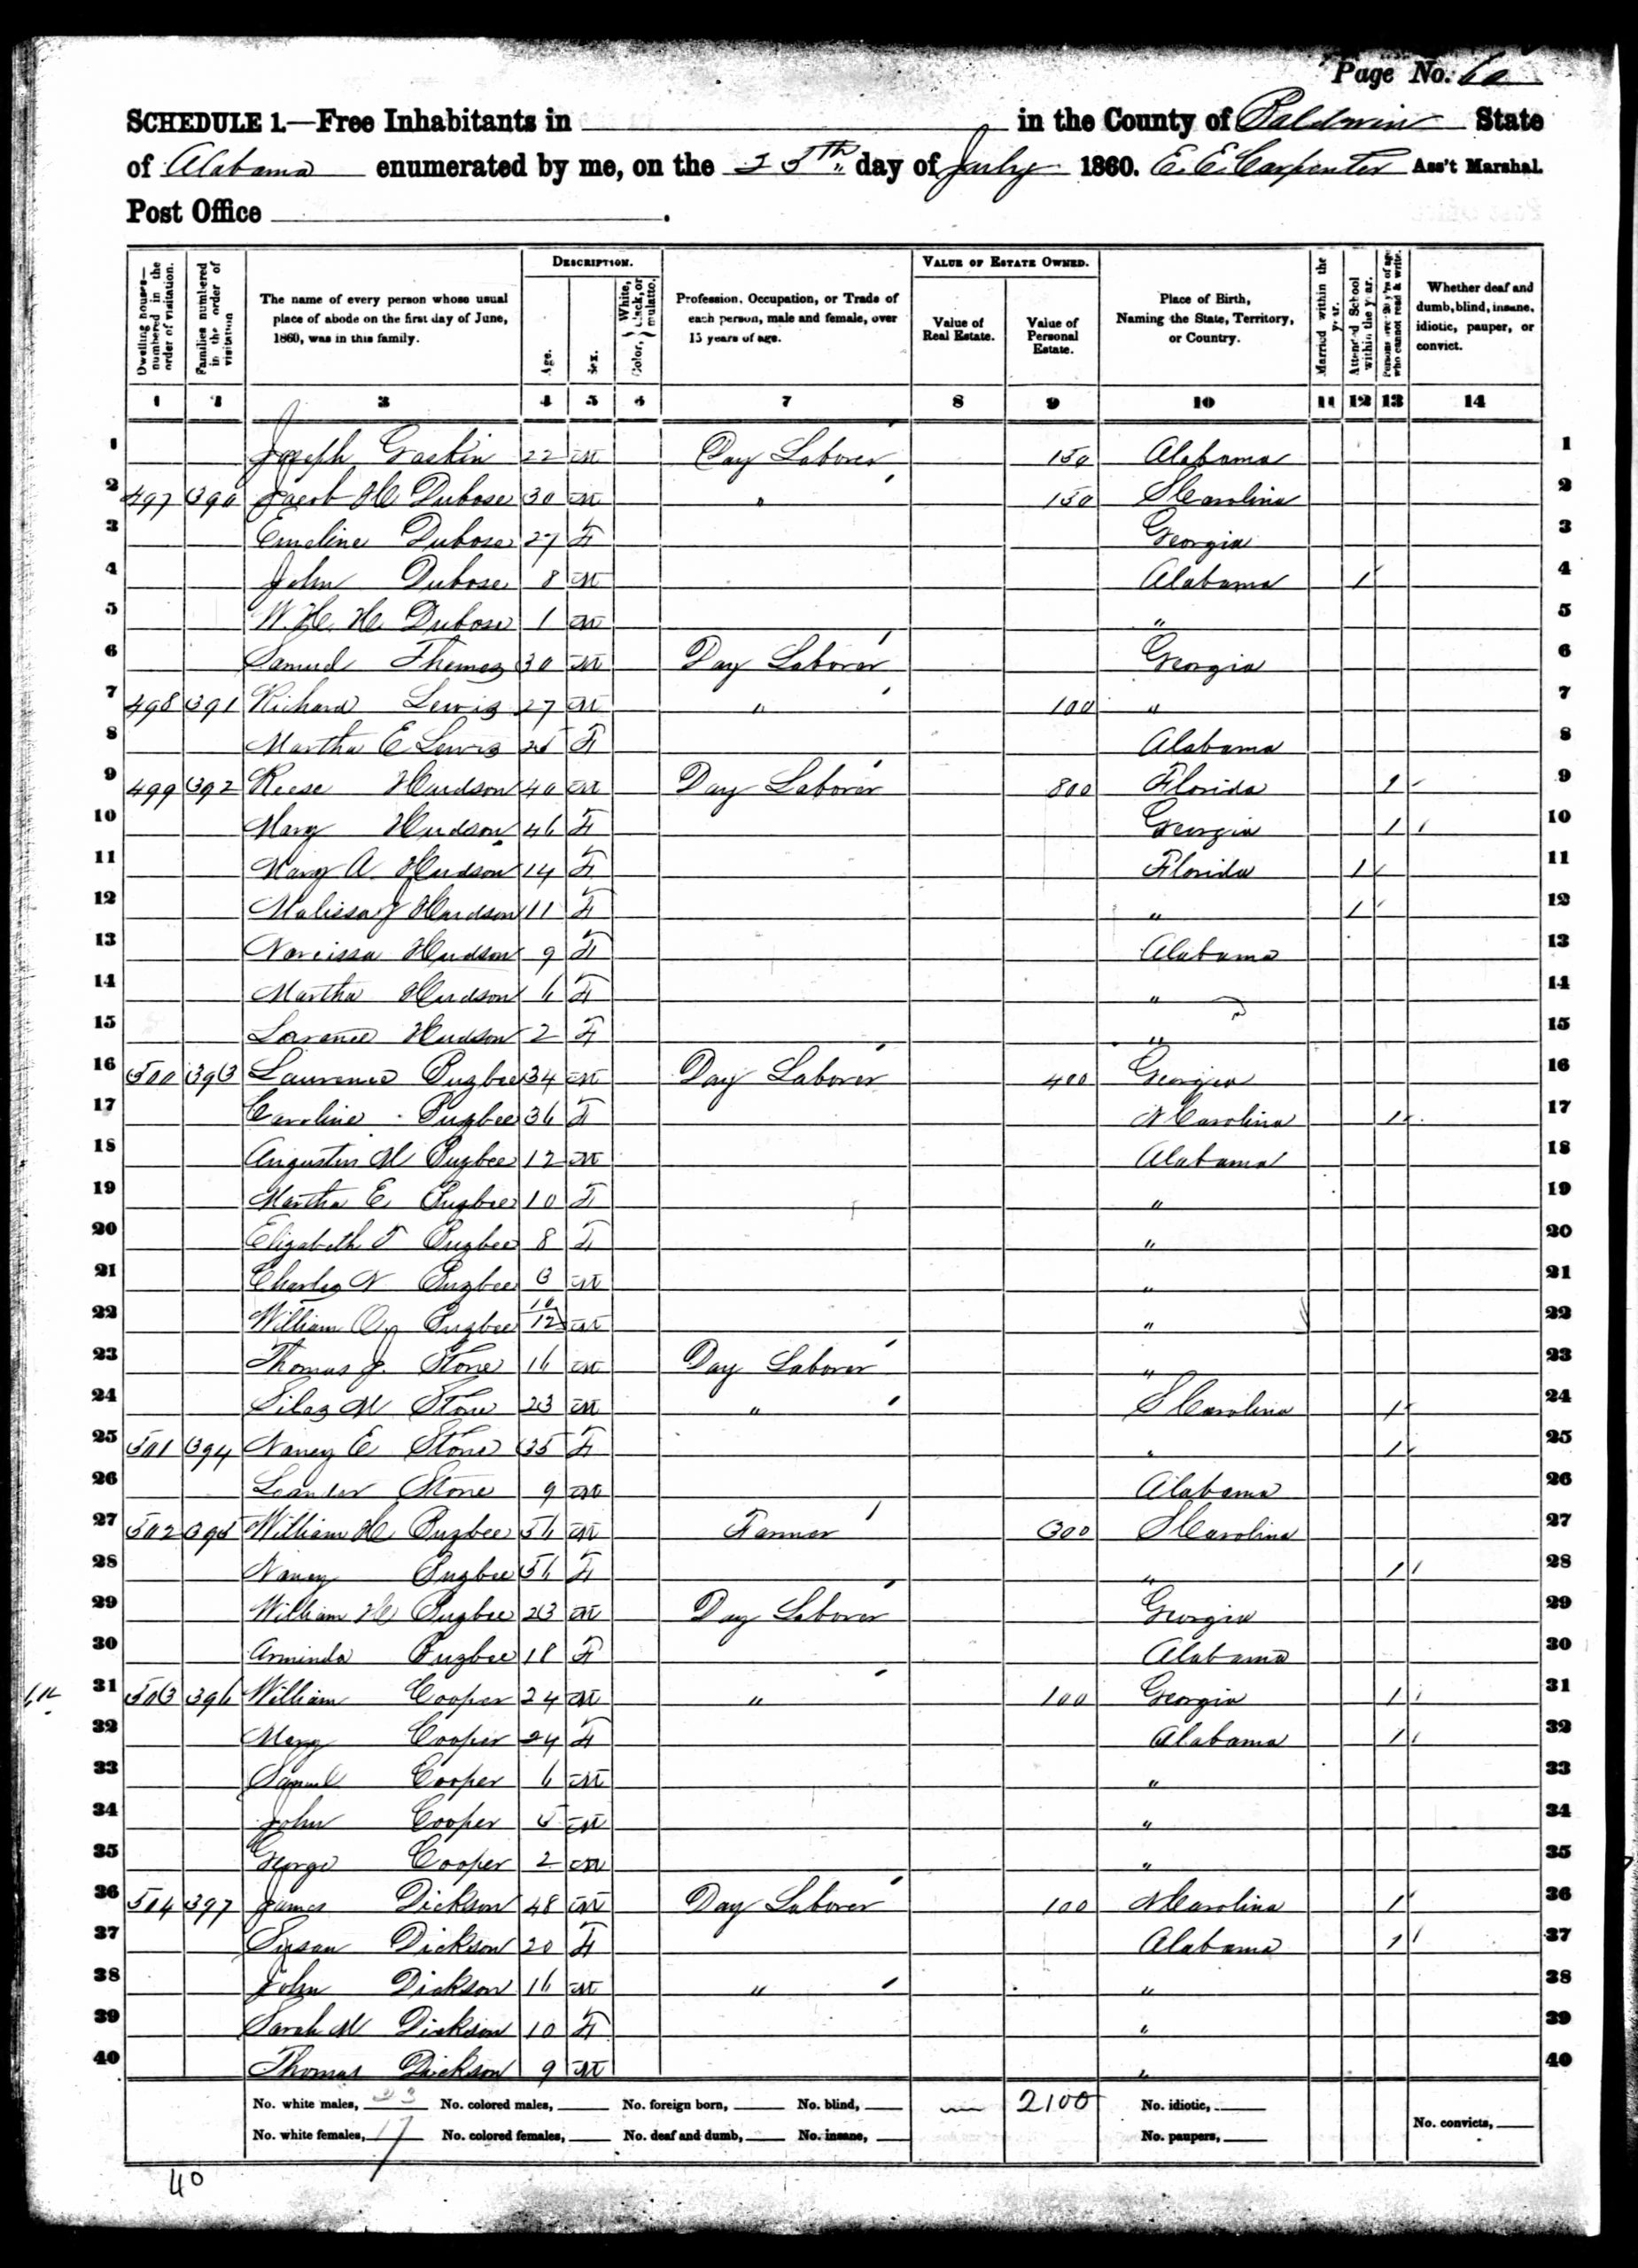 Page No. 60
SCHEDULE 1.—Free Inhabitants in in the County of Baldwin State
of Alabama enumerated by me, on the 25th day of July 1860. E. E. Carpenter Ass't Marshal.
Post Office
Dwelling houses—numbered in the order of visitation.
Families numbered in the order of visitation
The name of every person whose usual place of abode on the first day of June, 1860, was in this family.
DESCRIPTION.
Age.
Sex.
Color, White, black, or mulatto.
Profession, Occupation, or Trade of each person, male and female, over 15 years of age.
VALUE OF ESTATE OWNED.
Value of Real Estate.
Value of Personal Estate.
Place of Birth, Naming the State, Territory, or Country.
Married within the year.
Attend School within the year.
Persons over 20 y'rs of age who cannot read & write.
Whether deaf and dumb, blind, insane, idiotic, pauper, or convict.
1 2 3 4 5 6 7 8 9 10 11 12 13 14
1 Joseph Gaskin 22 M Day Laborer 150 Alabama 1
2 497 390 Jacob H Dubose 30 M " 150 S Carolina 2
3 Emeline Dubose 27 F Georgia 3
4 John Dubose 8 M Alabama 1 4
5 W. H. H. Dubose 1 M " 5
6 Samuel 30 M Day Laborer Georgia 6
7 498 391 Richard Lewis 27 M " 100 " 7
8 Martha E Lewis 25 F Alabama 8
9 499 392 Reese Hudson 40 M Day Laborer 800 Florida 1 9
10 Mary Hudson 46 F Georgia 1 10
11 Mary A. Hudson 14 F Florida 1 11
12 Malissa J Hudson 11 F " 1 12
13 Narcissa Hudson 9 F Alabama 13
14 Martha Hudson 6 F " 14
15 Hudson 2 F " 15
16 500 393 Laurence Buzbee 34 M Day Laborer 400 Georgia 16
17 Caroline Buzbee 36 F N Carolina 1 17
18 Augustus M Buzbee 12 M Alabama 18
19 Martha E Buzbee 10 F " 19
20 Elizabeth T Buzbee 8 F " 20
21 Charles N Buzbee 3 M " 21
22 William Buzbee 10/12 M " 22
23 Thomas J. Stone 16 M Day Laborer " 23
24 Silas M Stone 23 M " S Carolina 1 24
25 501 394 Nancy E Stone 35 F " 1 25
26 Leander Stone 9 M Alabama 26
27 502 395 William H Buzbee 56 M Farmer 300 S Carolina 27
28 Nancy Buzbee 56 F " 1 28
29 William H Buzbee 23 M Day Laborer Georgia 29
30 Arminda Buzbee 18 F Alabama 30
31 503 396 William Cooper 24 M " 100 Georgia 1 31
32 Mary Cooper 24 F Alabama 1 32
33 Samuel Cooper 6 M " 33
34 John Cooper 5 M " 34
35 George Cooper 2 M " 35
36 504 397 James Dickson 48 M Day Laborer 100 N Carolina 1 36
37 Susan Dickson 20 F Alabama 1 37
38 John Dickson 16 M " " 38
39 Sarah M Dickson 10 F " 39
40 Thomas Dickson 9 M " 40
No. white males, 23 No. colored males, No. foreign born, No. blind, 2100 No. idiotic,
No. white females, 17 No. colored females, No. deaf and dumb, No. insane, No. paupers, No. convicts,
40